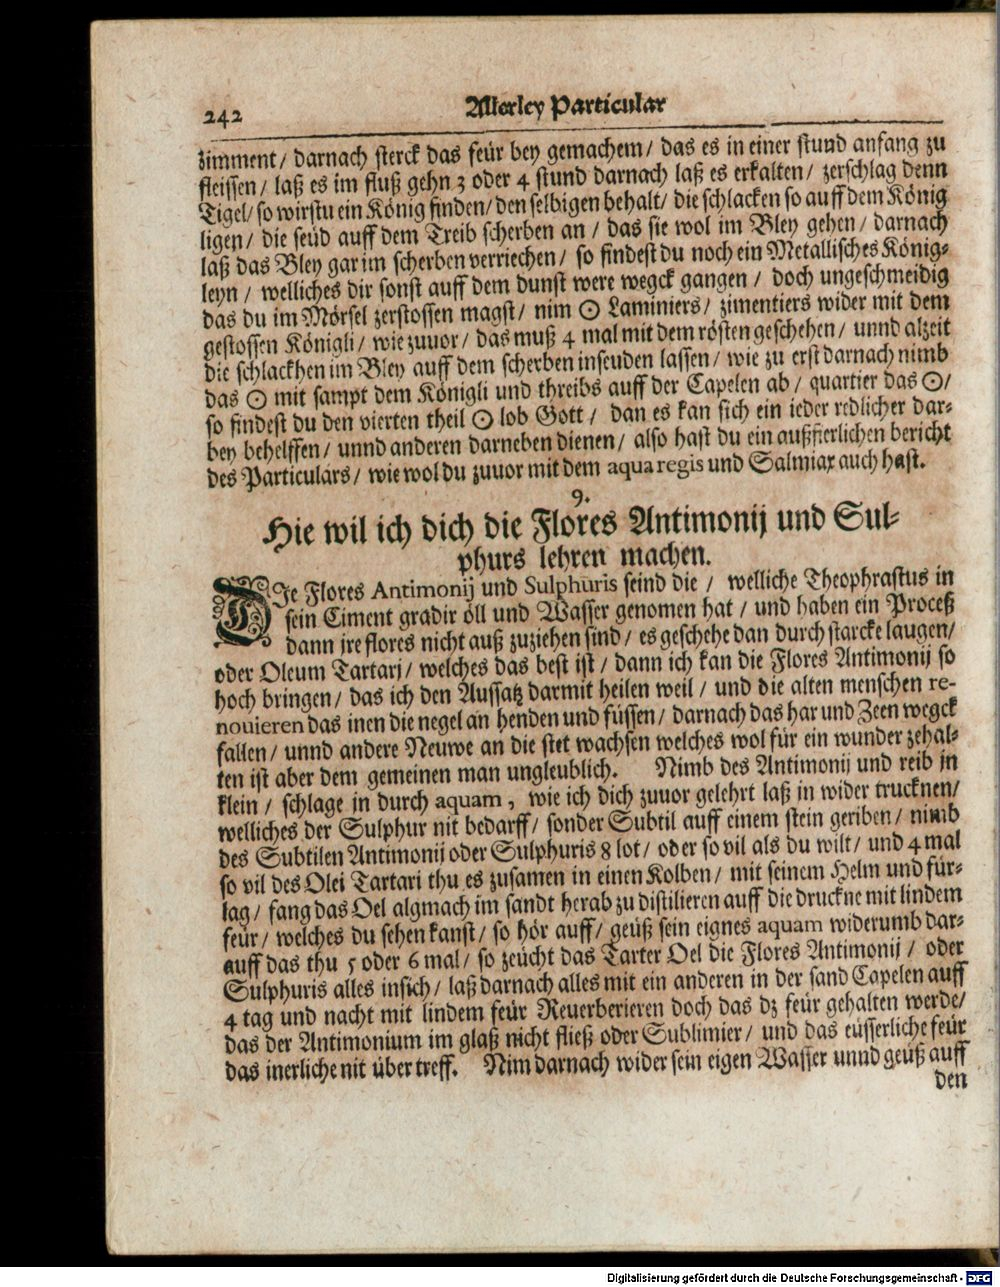 242
Allerley Particular
zimment / darnach sterck das feür bey gemachem / das es in einer stund anfang zu
fleissen / laß es im fluß gehn 3 oder 4 stund darnach laß es erkalten / zerschlag denn
Tigel / so wirstu ein König finden / den selbigen behalt / die schlacken so auff dem König
ligen / die seüd auff dem Treib scherben an / das sie wol im Bley gehen / darnach
laß das Bley gar im scherben verriechen / so findest du noch ein Metallisches König-
leyn / welliches dir sonst auff dem dunst were wegck gangen / doch ungeschmeidig
das du im Mörsel zerstossen magst / nim ☉ Laminiers / zimentiers wider mit dem
gestossen Königli / wie zuuor / das muß 4 mal mit dem rösten geschehen / unnd alzeit
die schlackhen im Bley auff dem scherben inseuden lassen / wie zu erst darnach nimb
das ☉ mit sampt dem Königli und threibs auff der Capelen ab / quartier das ☉ /
so findest du den vierten theil ☉ lob Gott / dan es kan sich ein ieder redlicher dar-
bey behelffen / unnd anderen darneben dienen / also hast du ein außfierlichen bericht
des Particulars / wie wol du zuuor mit dem aqua regis und Salmiax auch hast.
9.
Hie wil ich dich die Flores Antimonij und Sul-
phurs lehren machen.
DJe Flores Antimonij und Sulphuris seind die / welliche Theophrastus in
sein Ciment gradir öll und Wasser genomen hat / und haben ein Proceß
dann jre flores nicht auß zuziehen sind / es geschehe dan durch starcke laugen /
oder Oleum Tartarj / welches das best ist / dann ich kan die Flores Antimonij so
hoch bringen / das ich den Aussatz darmit heilen weil / und die alten menschen re-
nouieren das inen die negel an henden und füssen / darnach das har und Zeen wegck
fallen / unnd andere Neuwe an die stet wachsen welches wol für ein wunder zehal-
ten ist aber dem gemeinen man ungleublich. Nimb des Antimonij und reib in
klein / schlage in durch aquam, wie ich dich zuuor gelehrt laß in wider trucknen /
welliches der Sulphur nit bedarff / sonder Subtil auff einem stein geriben / nimb
des Subtilen Antimonij oder Sulphuris 8 lot / oder so vil als du wilt / und 4 mal
so vil des Olei Tartari thu es zusamen in einen Kolben / mit seinem Helm und für-
lag / fang das Oel algmach im sandt herab zu distilieren auff die druckne mit lindem
feür / welches du sehen kanst / so hör auff / geüß sein eignes aquam widerumb dar-
auff das thu 5 oder 6 mal / so zeücht das Tarter Oel die Flores Antimonij / oder
Sulphuris alles insich / laß darnach alles mit ein anderen in der sand Capelen auff
4 tag und nacht mit lindem feür Reuerberieren doch das dz feür gehalten werde /
das der Antimonium im glaß nicht fließ oder Sublimier / und das eüsserliche feür
das inerliche nit über treff. Nim darnach wider sein eigen Wasser unnd geüß auff
den
Digitalisierung gefördert durch die Deutsche Forschungsgemeinschaft - DFG